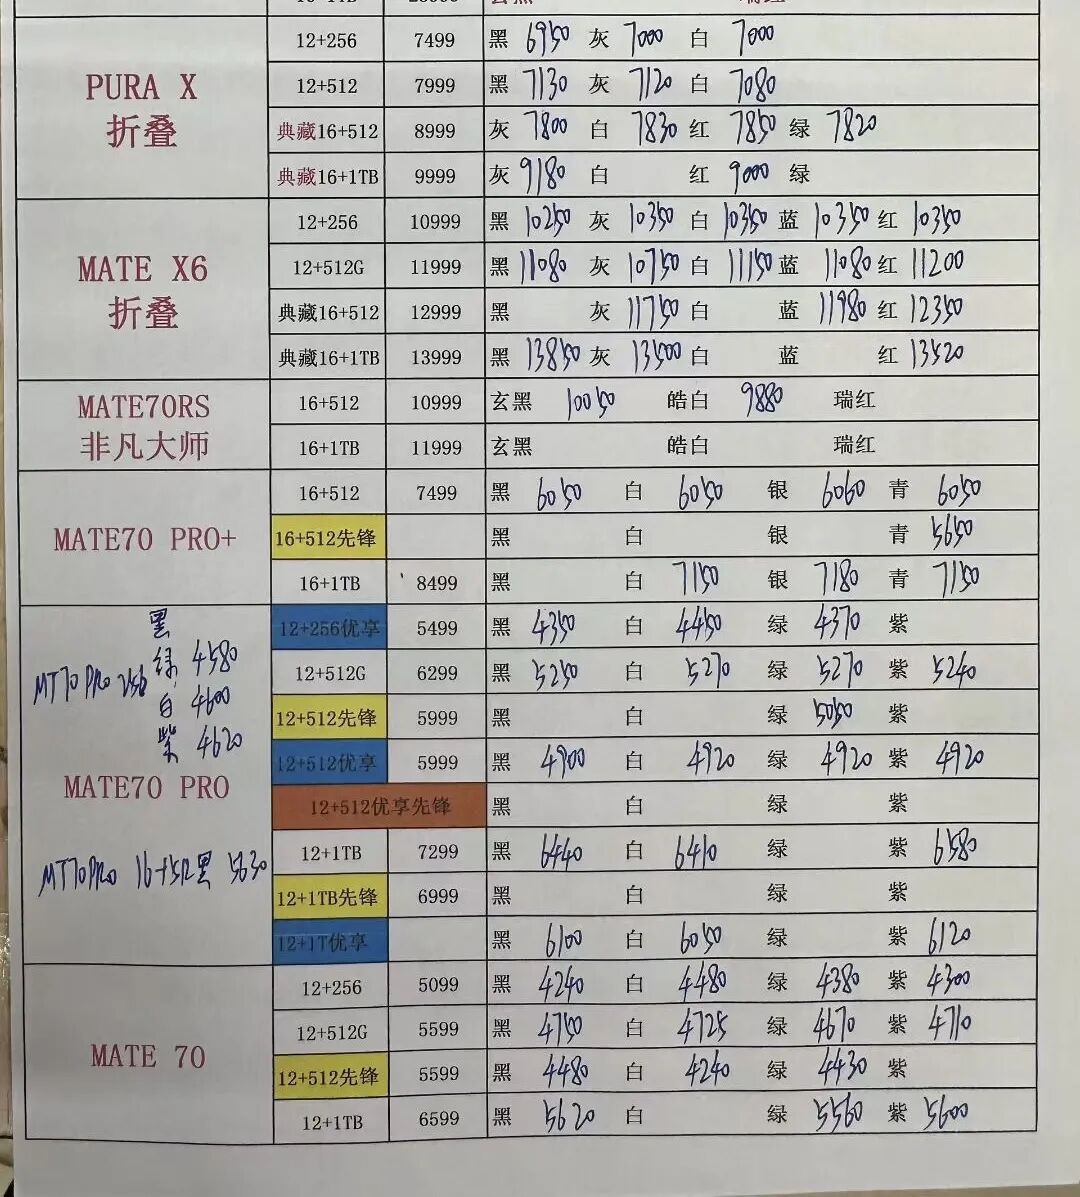 PURA X
折叠
12+256 7499 黑 6950 灰 7000 白 7000
12+512 7999 黑 7130 灰 7120 白 7080
典藏16+512 8999 灰 7800 白 7830 红 7850 绿 7820
典藏16+1TB 9999 灰 9180 白 红 9000 绿
MATE X6
折叠
12+256 10999 黑 10250 灰 10350 白 10350 蓝 10350 红 10350
12+512G 11999 黑 11080 灰 10750 白 11150 蓝 11080 红 11200
典藏16+512 12999 黑 灰 11750 白 蓝 11980 红 12350
典藏16+1TB 13999 黑 13850 灰 13500 白 蓝 红 13520
MATE70RS
非凡大师
16+512 10999 玄黑 10050 皓白 9880 瑞红
16+1TB 11999 玄黑 皓白 瑞红
MATE70 PRO+
16+512 7499 黑 6050 白 6050 银 6060 青 6050
16+512先锋 黑 白 银 青 5650
16+1TB 8499 黑 白 7150 银 7180 青 7150
黑
MT70 PRO 256 绿 4580
白 4600
紫 4620
MATE70 PRO
MT70PRO 16+512黑 5630
12+256优享 5499 黑 4350 白 4450 绿 4370 紫
12+512G 6299 黑 5250 白 5270 绿 5270 紫 5240
12+512先锋 5999 黑 白 绿 5050 紫
12+512优享 5999 黑 4900 白 4920 绿 4920 紫 4920
12+512优享先锋 黑 白 绿 紫
12+1TB 7299 黑 6440 白 6410 绿 紫 6580
12+1TB先锋 6999 黑 白 绿 紫
12+1T优享 黑 6100 白 6050 绿 紫 6120
MATE 70
12+256 5099 黑 4240 白 4480 绿 4380 紫 4300
12+512G 5599 黑 4750 白 4725 绿 4670 紫 4710
12+512先锋 5599 黑 4480 白 4240 绿 4430 紫
12+1TB 6599 黑 5620 白 绿 5560 紫 5600